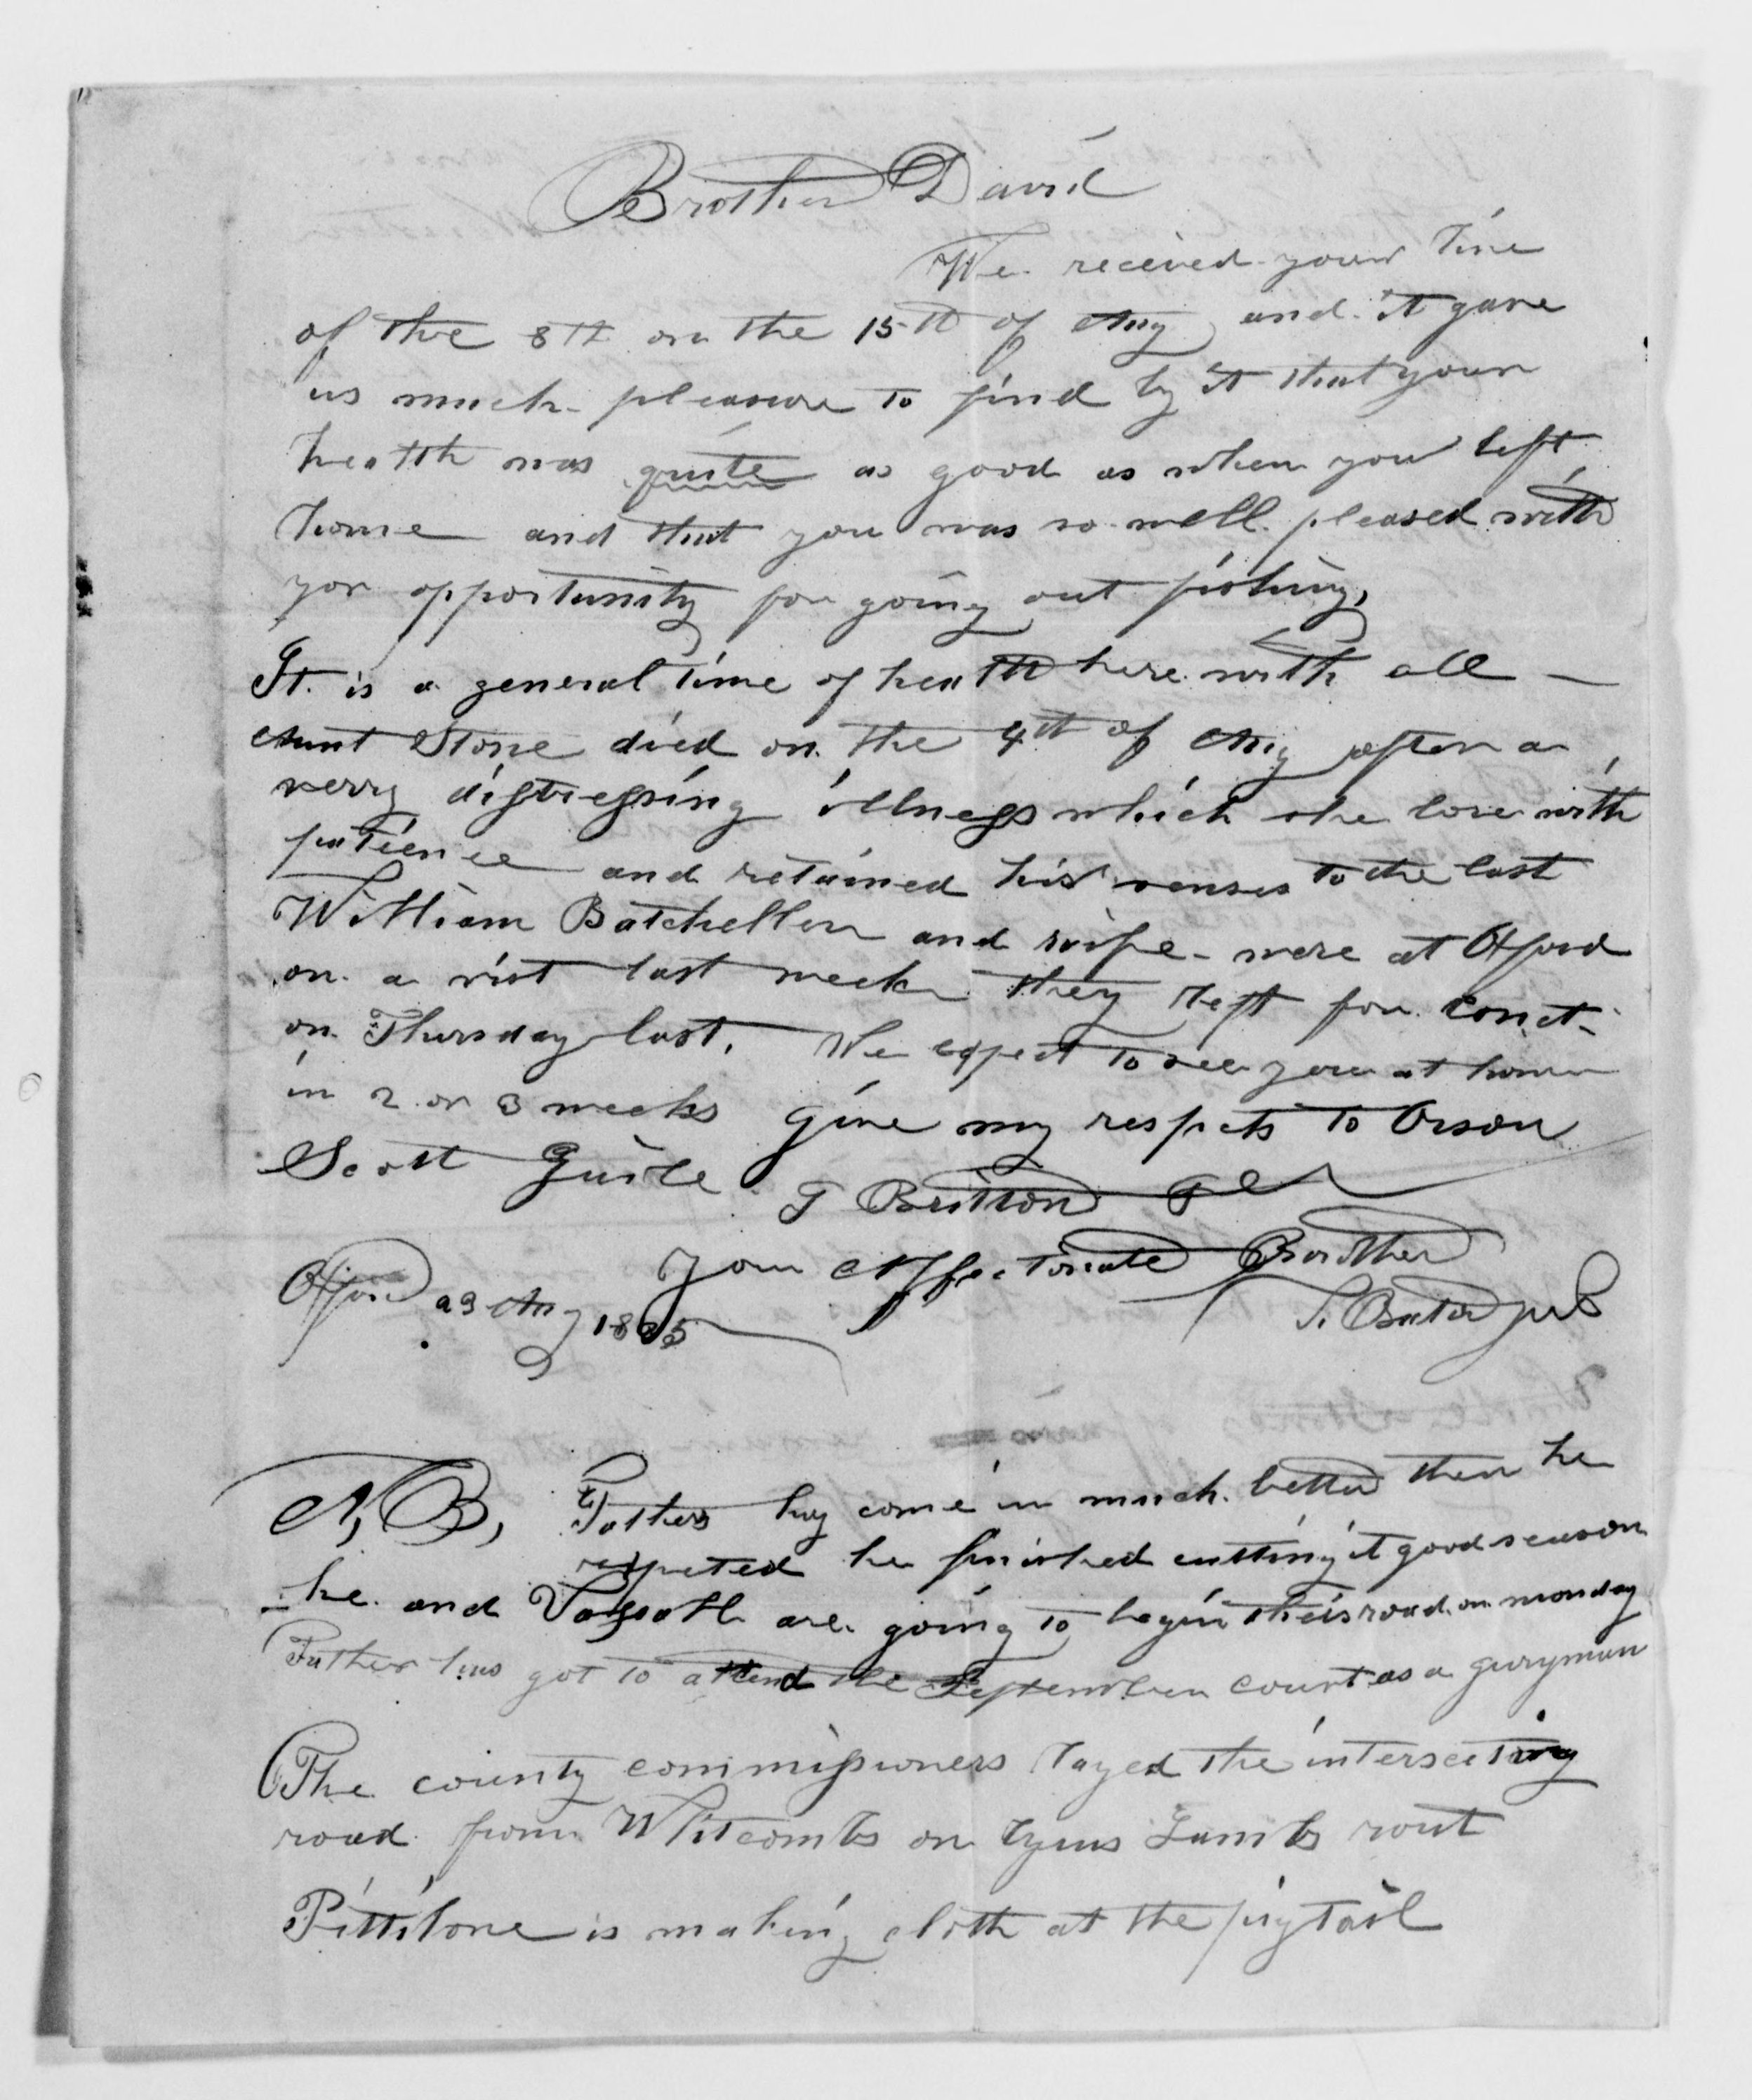 Brother David
We recieved your line
of the 8th on the 15th of Aug and it gave
us much pleasure to find by it that your
health was quite as good as when you left
home and that you was so well pleased with
yor opportunity for going out fishing,
It is a general time of health here with all —
Aunt Stone died on the 4th of Aug after a
verry distressing illness which she bore with
patience and retained his senses to the last
William Batcheller and wife were at Oxford
on a visit last week they left for Conct.
on Thursday last. We expect to see you at home
in 2 or 3 weeks give my respects to Orson
Scott Guile T Britton
Your Affectionate Brother
Oxford 29 Aug 1835
N, B, Fathers hay come in much better then he
expected he finished cutting it good season
he and are going to begin their road on monday
Father has got to attend the September court as a guryman
The county commissioners layed the intersecting
road from Whitcombs on Cyrus Lambs rout
is making cloth at the pigtail